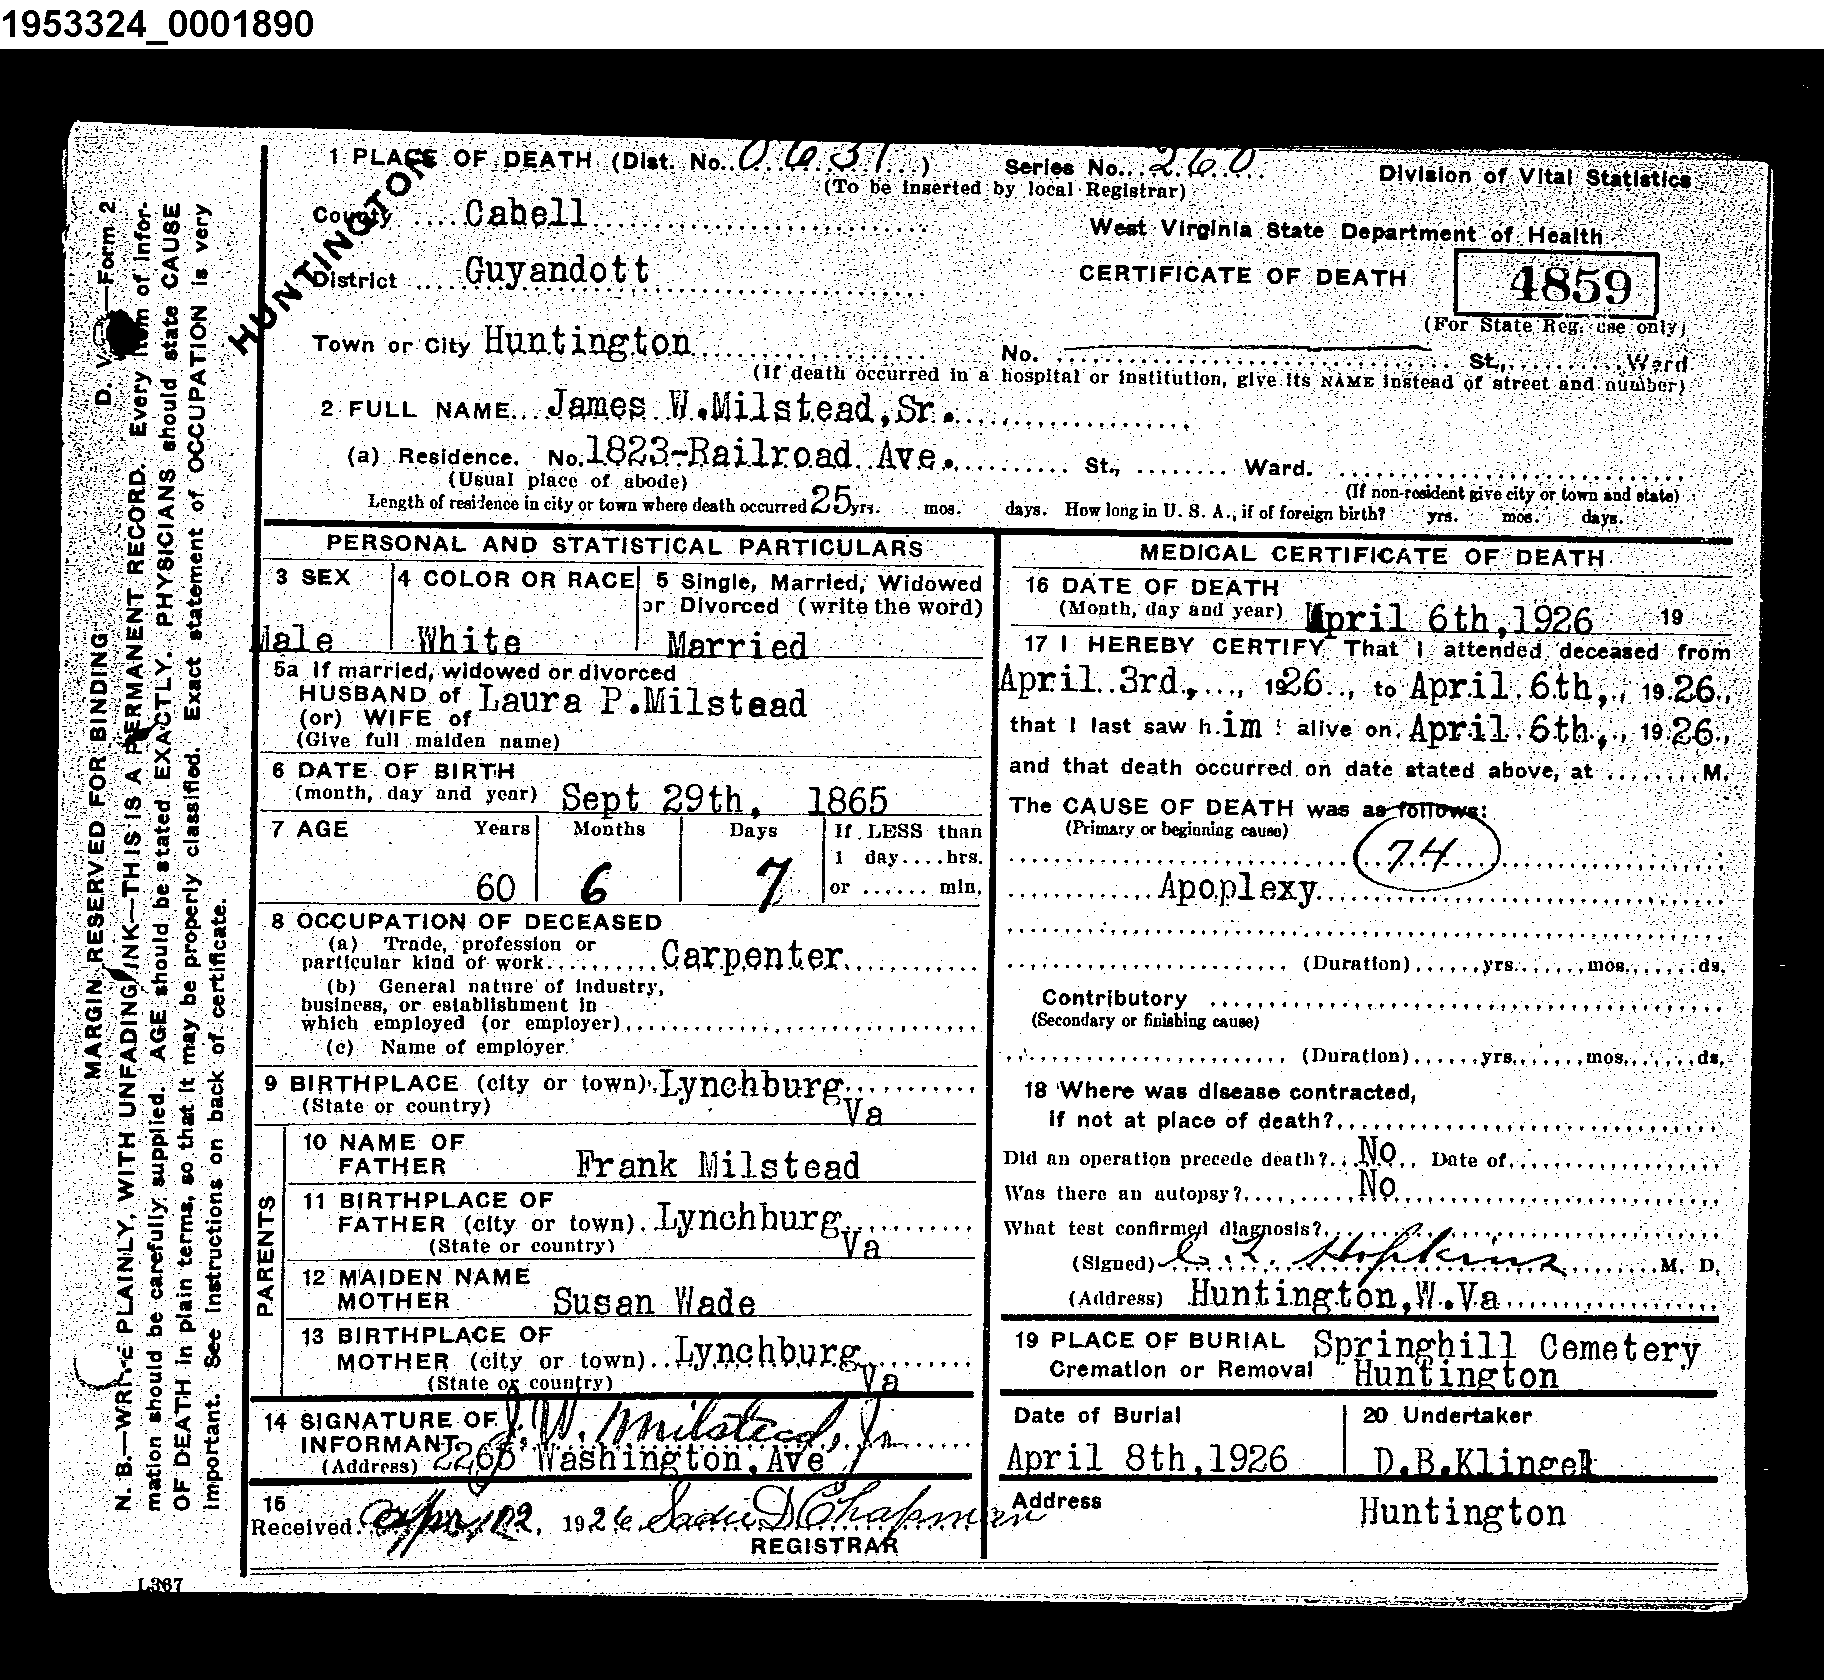 1953324_0001890
1 PLACE OF DEATH (Dist. No. 0631) Series No. 260
(To be inserted by local Registrar)
Division of Vital Statistics
West Virginia State Department of Health
CERTIFICATE OF DEATH
4859
(For State Reg. use only)
HUNTINGTON
County Cabell
District Guyandott
Town or City Huntington
No. St., Ward
(If death occurred in a hospital or institution, give its NAME instead of street and number)
2 FULL NAME James W.Milstead,Sr.
(a) Residence. No. 1823-Railroad Ave. St., Ward.
(Usual place of abode)
(If non-resident give city or town and state)
Length of residence in city or town where death occurred 25 yrs. mos. days. How long in U. S. A., if of foreign birth? yrs. mos. days.
PERSONAL AND STATISTICAL PARTICULARS
3 SEX
Male
4 COLOR OR RACE
White
5 Single, Married, Widowed
or Divorced (write the word)
Married
5a If married, widowed or divorced
HUSBAND of
(or) WIFE of
Laura P.Milstead
(Give full maiden name)
6 DATE OF BIRTH
(month, day and year) Sept 29th, 1865
7 AGE Years Months Days If LESS than
1 day....hrs.
60 6 7 or ...... min.
8 OCCUPATION OF DECEASED
(a) Trade, profession or
particular kind of work Carpenter
(b) General nature of industry,
business, or establishment in
which employed (or employer)
(c) Name of employer
9 BIRTHPLACE (city or town) Lynchburg
(State or country) Va
PARENTS
10 NAME OF
FATHER Frank Milstead
11 BIRTHPLACE OF
FATHER (city or town) Lynchburg
(State or country) Va
12 MAIDEN NAME
MOTHER Susan Wade
13 BIRTHPLACE OF
MOTHER (city or town) Lynchburg
(State or country) Va
14 SIGNATURE OF
INFORMANT J. W. Milstead, Jr
(Address) Washington,Ave
15
Received 1926 Sadie D Chapman
REGISTRAR
MEDICAL CERTIFICATE OF DEATH
16 DATE OF DEATH
(Month, day and year) April 6th,1926 19
17 I HEREBY CERTIFY That I attended deceased from
April 3rd, 1926, to April 6th, 1926,
that I last saw him alive on April 6th, 1926,
and that death occurred on date stated above, at M.
The CAUSE OF DEATH was as follows:
(Primary or beginning cause)
74
Apoplexy
(Duration) yrs. mos. ds.
Contributory
(Secondary or finishing cause)
(Duration) yrs. mos. ds.
18 Where was disease contracted,
if not at place of death?
Did an operation precede death? No Date of
Was there an autopsy? No
What test confirmed diagnosis?
(Signed) Hopkins M. D.
(Address) Huntington,W.Va
19 PLACE OF BURIAL
Cremation or Removal
Springhill Cemetery
Huntington
Date of Burial
April 8th,1926
20 Undertaker
D.B.Klingel
Address Huntington
D. V. —Form. 2
MARGIN RESERVED FOR BINDING
N. B.—WRITE PLAINLY, WITH UNFADING INK—THIS IS A PERMANENT RECORD. Every item of infor-
mation should be carefully supplied. AGE should be stated EXACTLY. PHYSICIANS should state CAUSE
OF DEATH in plain terms, so that it may be properly classified. Exact statement of OCCUPATION is very
important. See instructions on back of certificate.
L367